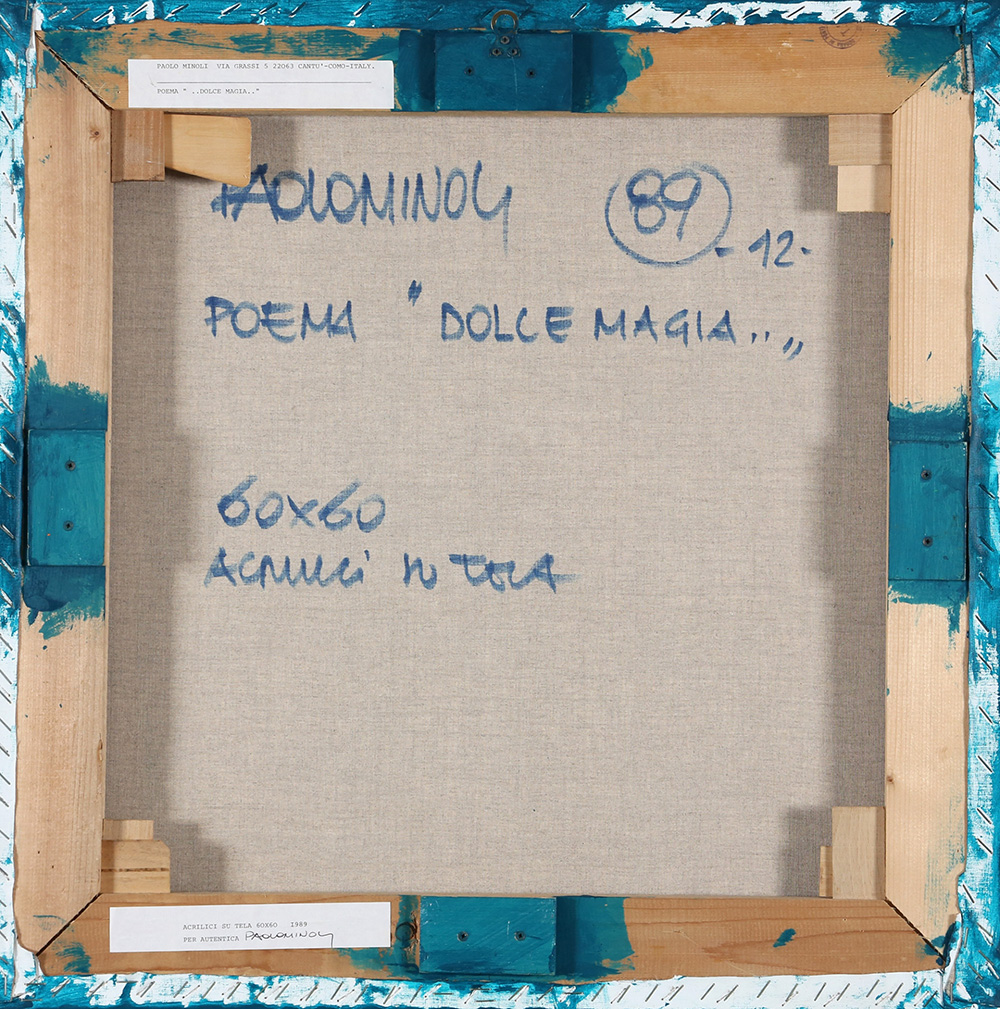 PAOLO MINOLI VIA GRASSI 5 22063 CANTU'-COMO-ITALY.
POEMA " ..DOLCE MAGIA.."
PAOLOMINOLI
89 -12-
POEMA " DOLCE MAGIA..„
60x60
ACRILICI SU TELA
ACRILICI SU TELA 60X60 1989
PER AUTENTICA PAOLOMINOLI